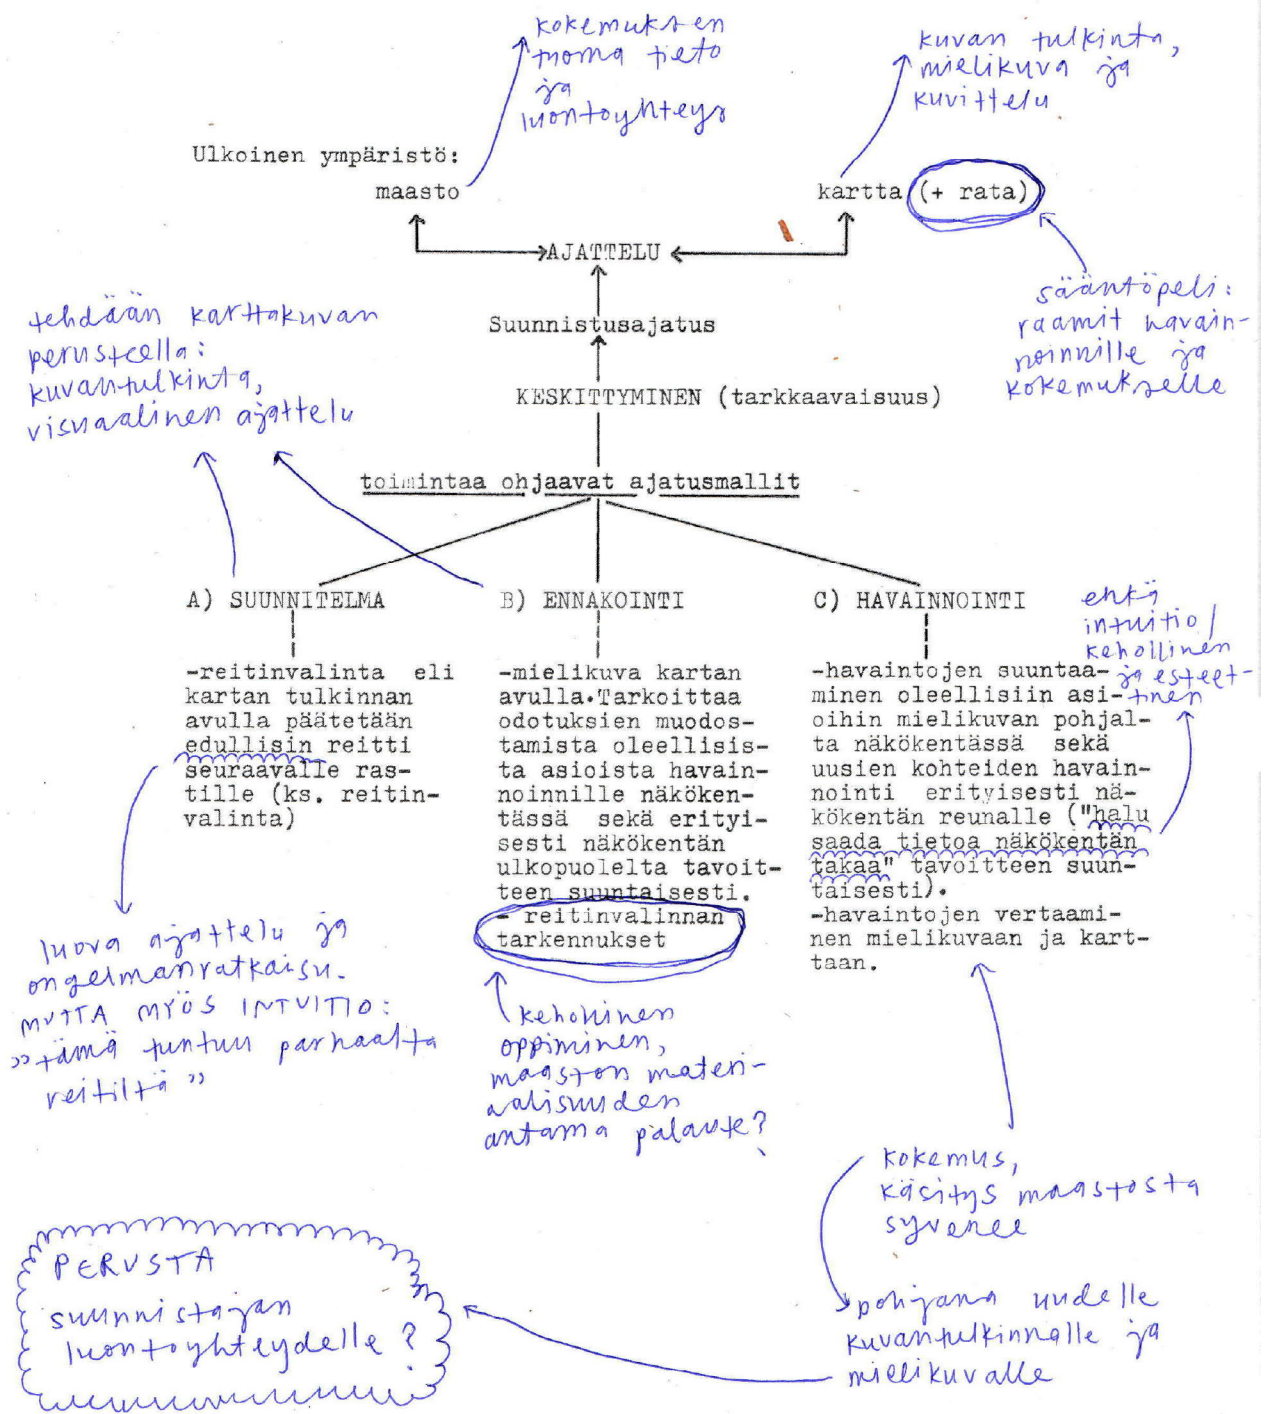 kokemuksen
tuoma tieto
ja
luontoyhteys
kuvan tulkinta,
mielikuva ja
kuvittelu
Ulkoinen ympäristö:
maasto
kartta (+ rata)
AJATTELU
sääntöpeli:
raamit havain-
noinnille ja
kokemukselle
tehdään karttakuvan
perusteella:
kuvantulkinta,
visuaalinen ajattelu
Suunnistusajatus
KESKITTYMINEN (tarkkaavaisuus)
toimintaa ohjaavat ajatusmallit
A) SUUNNITELMA
-reitinvalinta eli
kartan tulkinnan
avulla päätetään
edullisin reitti
seuraavalle ras-
tille (ks. reitin-
valinta)
B) ENNAKOINTI
-mielikuva kartan
avulla.Tarkoittaa
odotuksien muodos-
tamista oleellisis-
ta asioista havain-
noinnille näköken-
tässä sekä erityi-
sesti näkökentän
ulkopuolelta tavoit-
teen suuntaisesti.
- reitinvalinnan
tarkennukset
C) HAVAINNOINTI
-havaintojen suuntaa-
minen oleellisiin asi-
oihin mielikuvan pohjal-
ta näkökentässä sekä
uusien kohteiden havain-
nointi erityisesti nä-
kökentän reunalle ("halu
saada tietoa näkökentän
takaa" tavoitteen suun-
taisesti).
-havaintojen vertaami-
nen mielikuvaan ja kart-
taan.
ehkä
intuitio/
kehollinen
ja esteet-
tinen
luova ajattelu ja
ongelmanratkaisu.
MUTTA MYÖS INTUITIO:
"tämä tuntuu parhaalta
reitiltä"
kehollinen
oppiminen,
maaston materi-
aalisuuden
antama palaute?
kokemus,
käsitys maastosta
syvenee
pohjana uudelle
kuvantulkinnalle ja
mielikuvalle
PERUSTA
suunnistajan
luontoyhteydelle?